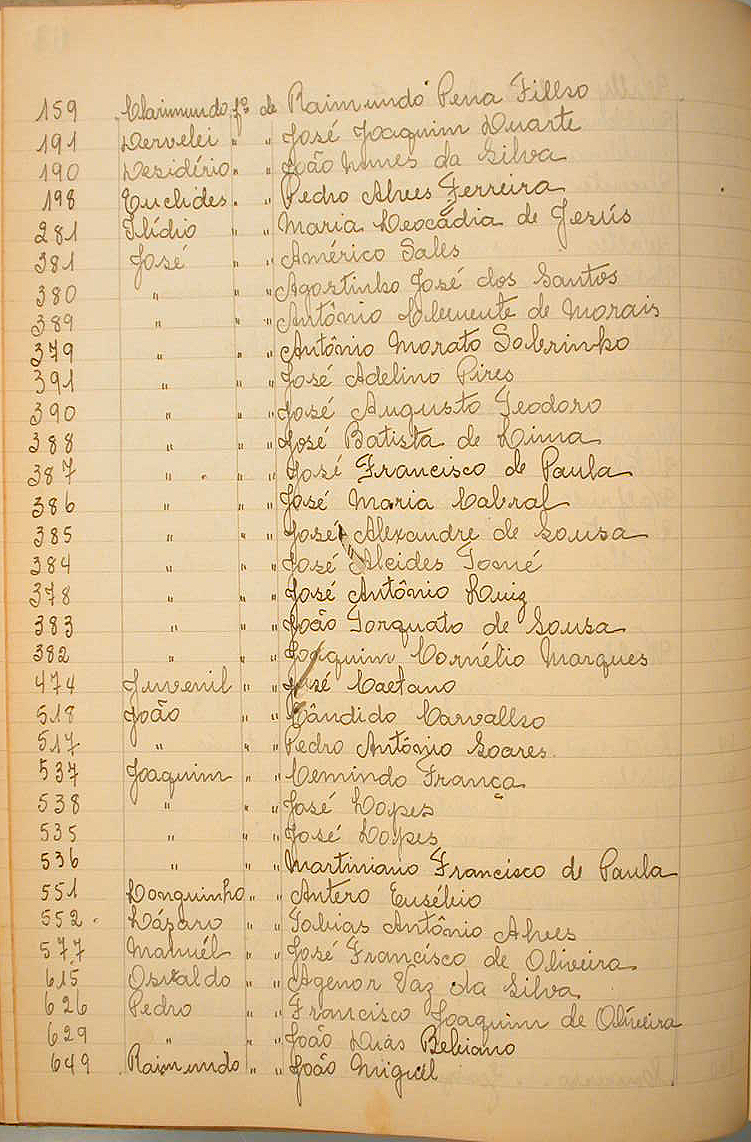 159 Clarimundo fº de Raimundo Pena Filho
191 Dervelei " " José Joaquim Duarte
190 Desidério " " João Nunes da Silva
198 Euclides " " Pedro Alves Ferreira
281 Ilídio " " Maria Leocádia de Jesús
381 José " " Américo Sales
380 " " " Agostinho José dos Santos
389 " " " Antônio Clemente de Morais
379 " " " Antônio Morato Sobrinho
391 " " " José Adelino Pires
390 " " " José Augusto Teodoro
388 " " " José Batista de Lima
387 " " " José Francisco de Paula
386 " " " José Maria Cabral
385 " " " José Alexandre de Sousa
384 " " " José Alcides Tomé
378 " " " José Antônio Luiz
383 " " " João Torquato de Sousa
382 " " " Joaquim Cornélio Marques
474 Juvenil " " José Caetano
518 João " " Cândido Carvalho
517 " " " Pedro Antônio Soares
537 Joaquim " " França
538 " " " José Lopes
535 " " " José Lopes
536 " " " Martiniano Francisco de Paula
551 Longuinho " " Antero Eusébio
552 Lázaro " " Tobias Antônio Alves
577 Manuél " " José Francisco de Oliveira
615 Osvaldo " " Agenor Vaz da Silva
626 Pedro " " Francisco Joaquim de Oliveira
629 " " " João Dias Bebiano
649 Raimundo " " João Miguel